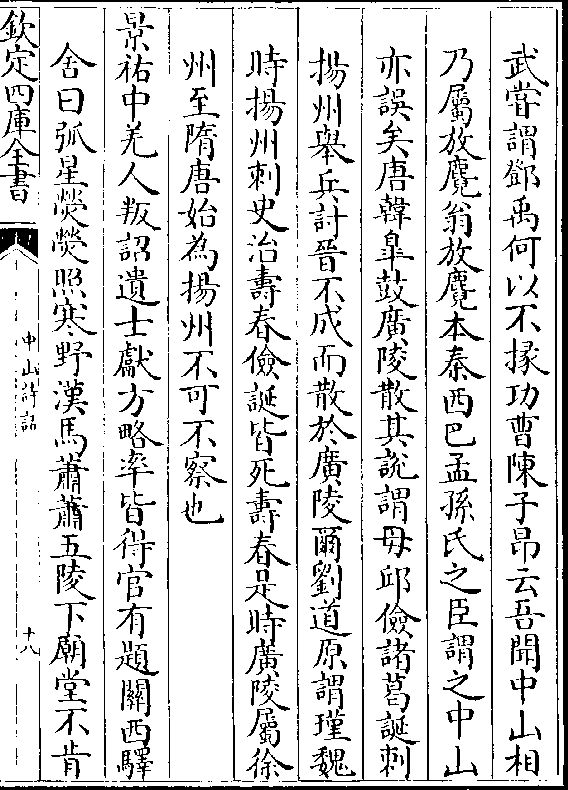 武嘗謂鄧禹何以不掾功曹陳子昂云吾聞中山相
乃屬放麑翁放麑本秦西巴孟孫氏之臣謂之中山
亦誤矣唐韓臯鼓廣陵散其説謂毋邱儉諸葛誕刺
揚州舉兵討晉不成而散於廣陵爾劉道原謂瑾魏
時揚州刺史治壽春儉誕皆死壽春是時廣陵屬徐
州至隋唐始為揚州不可不察也
景祐中羌人叛詔遺士獻方略率皆得官有題關西驛
舍曰弧星熒熒照寒野漢馬蕭蕭五陵下廟堂不肯
欽定四庫全書
中山詩話
十八